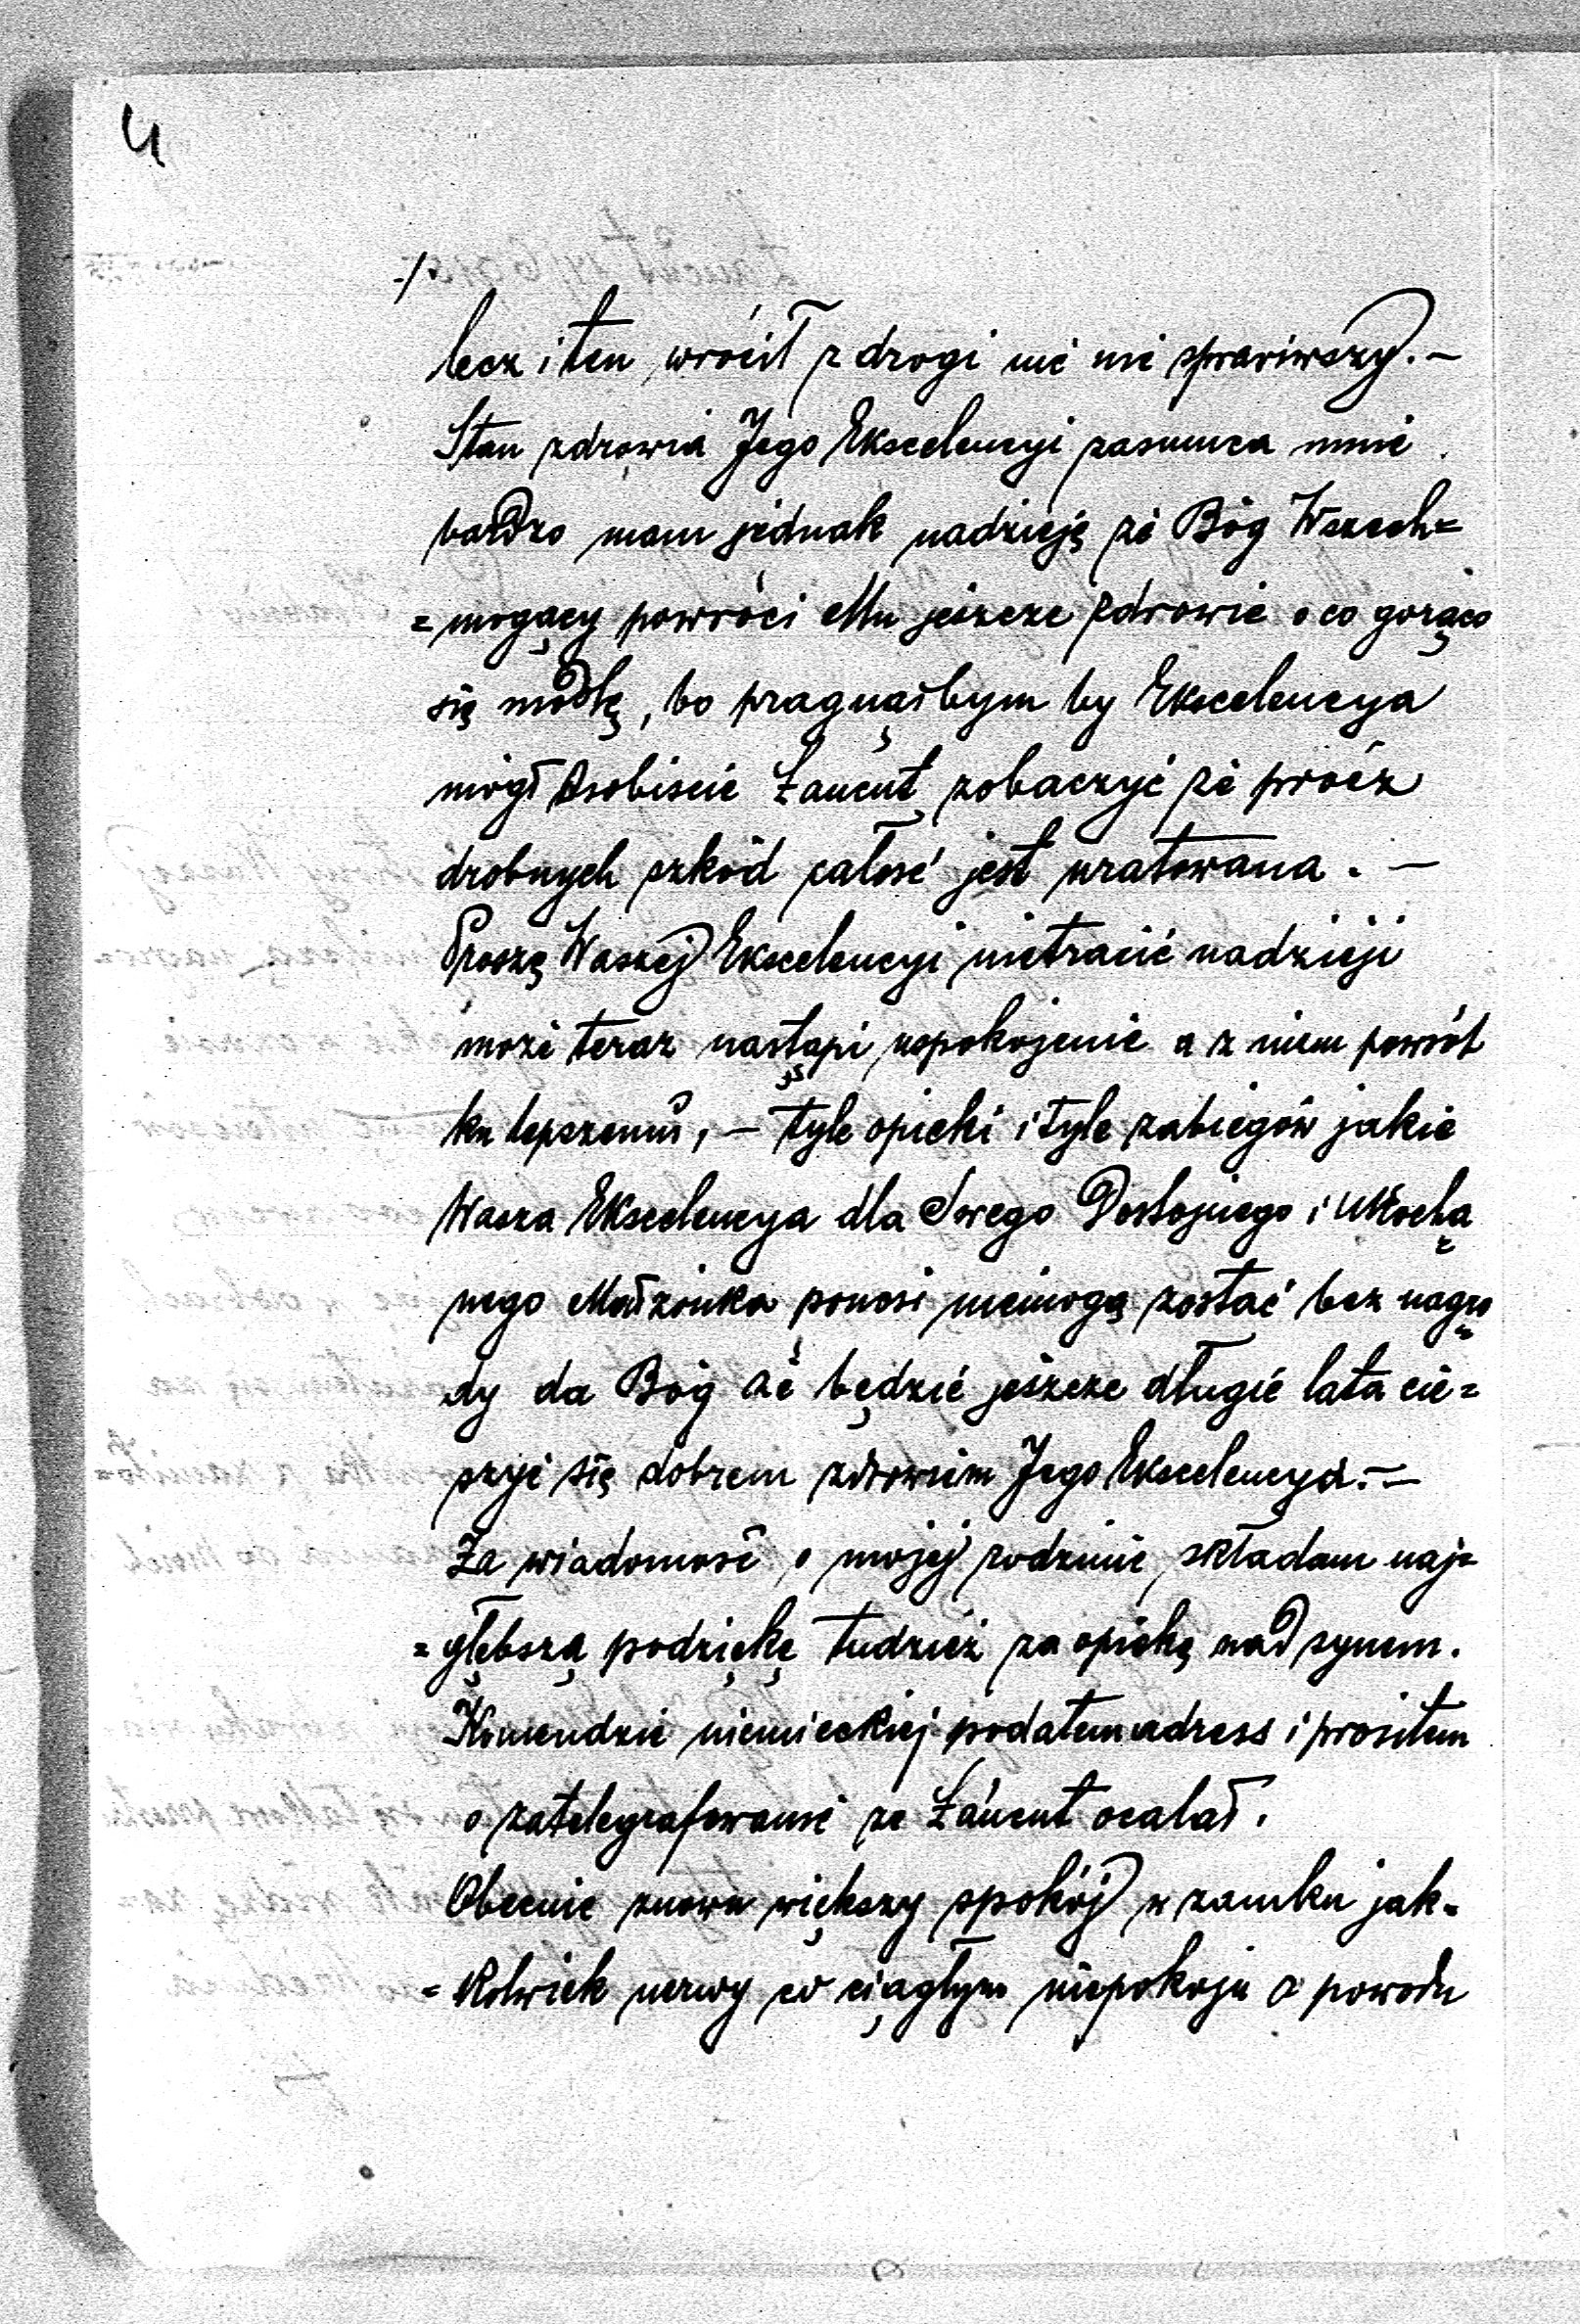 4
-/-
lecz i ten wrócił z drogi nic nie sprawiwszy. —
Stan zdrowia Jego Ekscelencyi zasmuca mnie
bardzo mam jednak nadzieję że Bóg Wszech=
=mogący powróci Mu jeszcze zdrowie o co gorąco
się modlę, bo pragnąłbym by Ekscelencya
mógł osobiscie Łańcut zobaczyć że prócz
drobnych szkód całość jest uratowana. —
Proszę Waszej Ekscelencyi nietracić nadzieji
może teraz nastąpi uspokojenie a z niem powrót
ku lepszemu, — tyle opieki i tyle zabiegów jakie
Wasza Ekscelencya dla Swego Dostojnego i Ukocha=
nego Małżonka ponosi niemogą zostać bez nagro=
dy da Bóg że będzie jeszcze długie lata cie=
szyć się dobrem zdrowiem Jego Ekscelencya. —
Za wiadomość o mojej rodzinie składam naj=
=głębszą podziękę tudzież za opiekę nad synem.
Komendzie niemieckiej podałem adress i prosiłem
o zatelegrafowanie że Łańcut ocalał.
Obecnie znowu większy spokój w zamku jak=
=kolwiek nerwy w ciągłym niepokoju z powodu